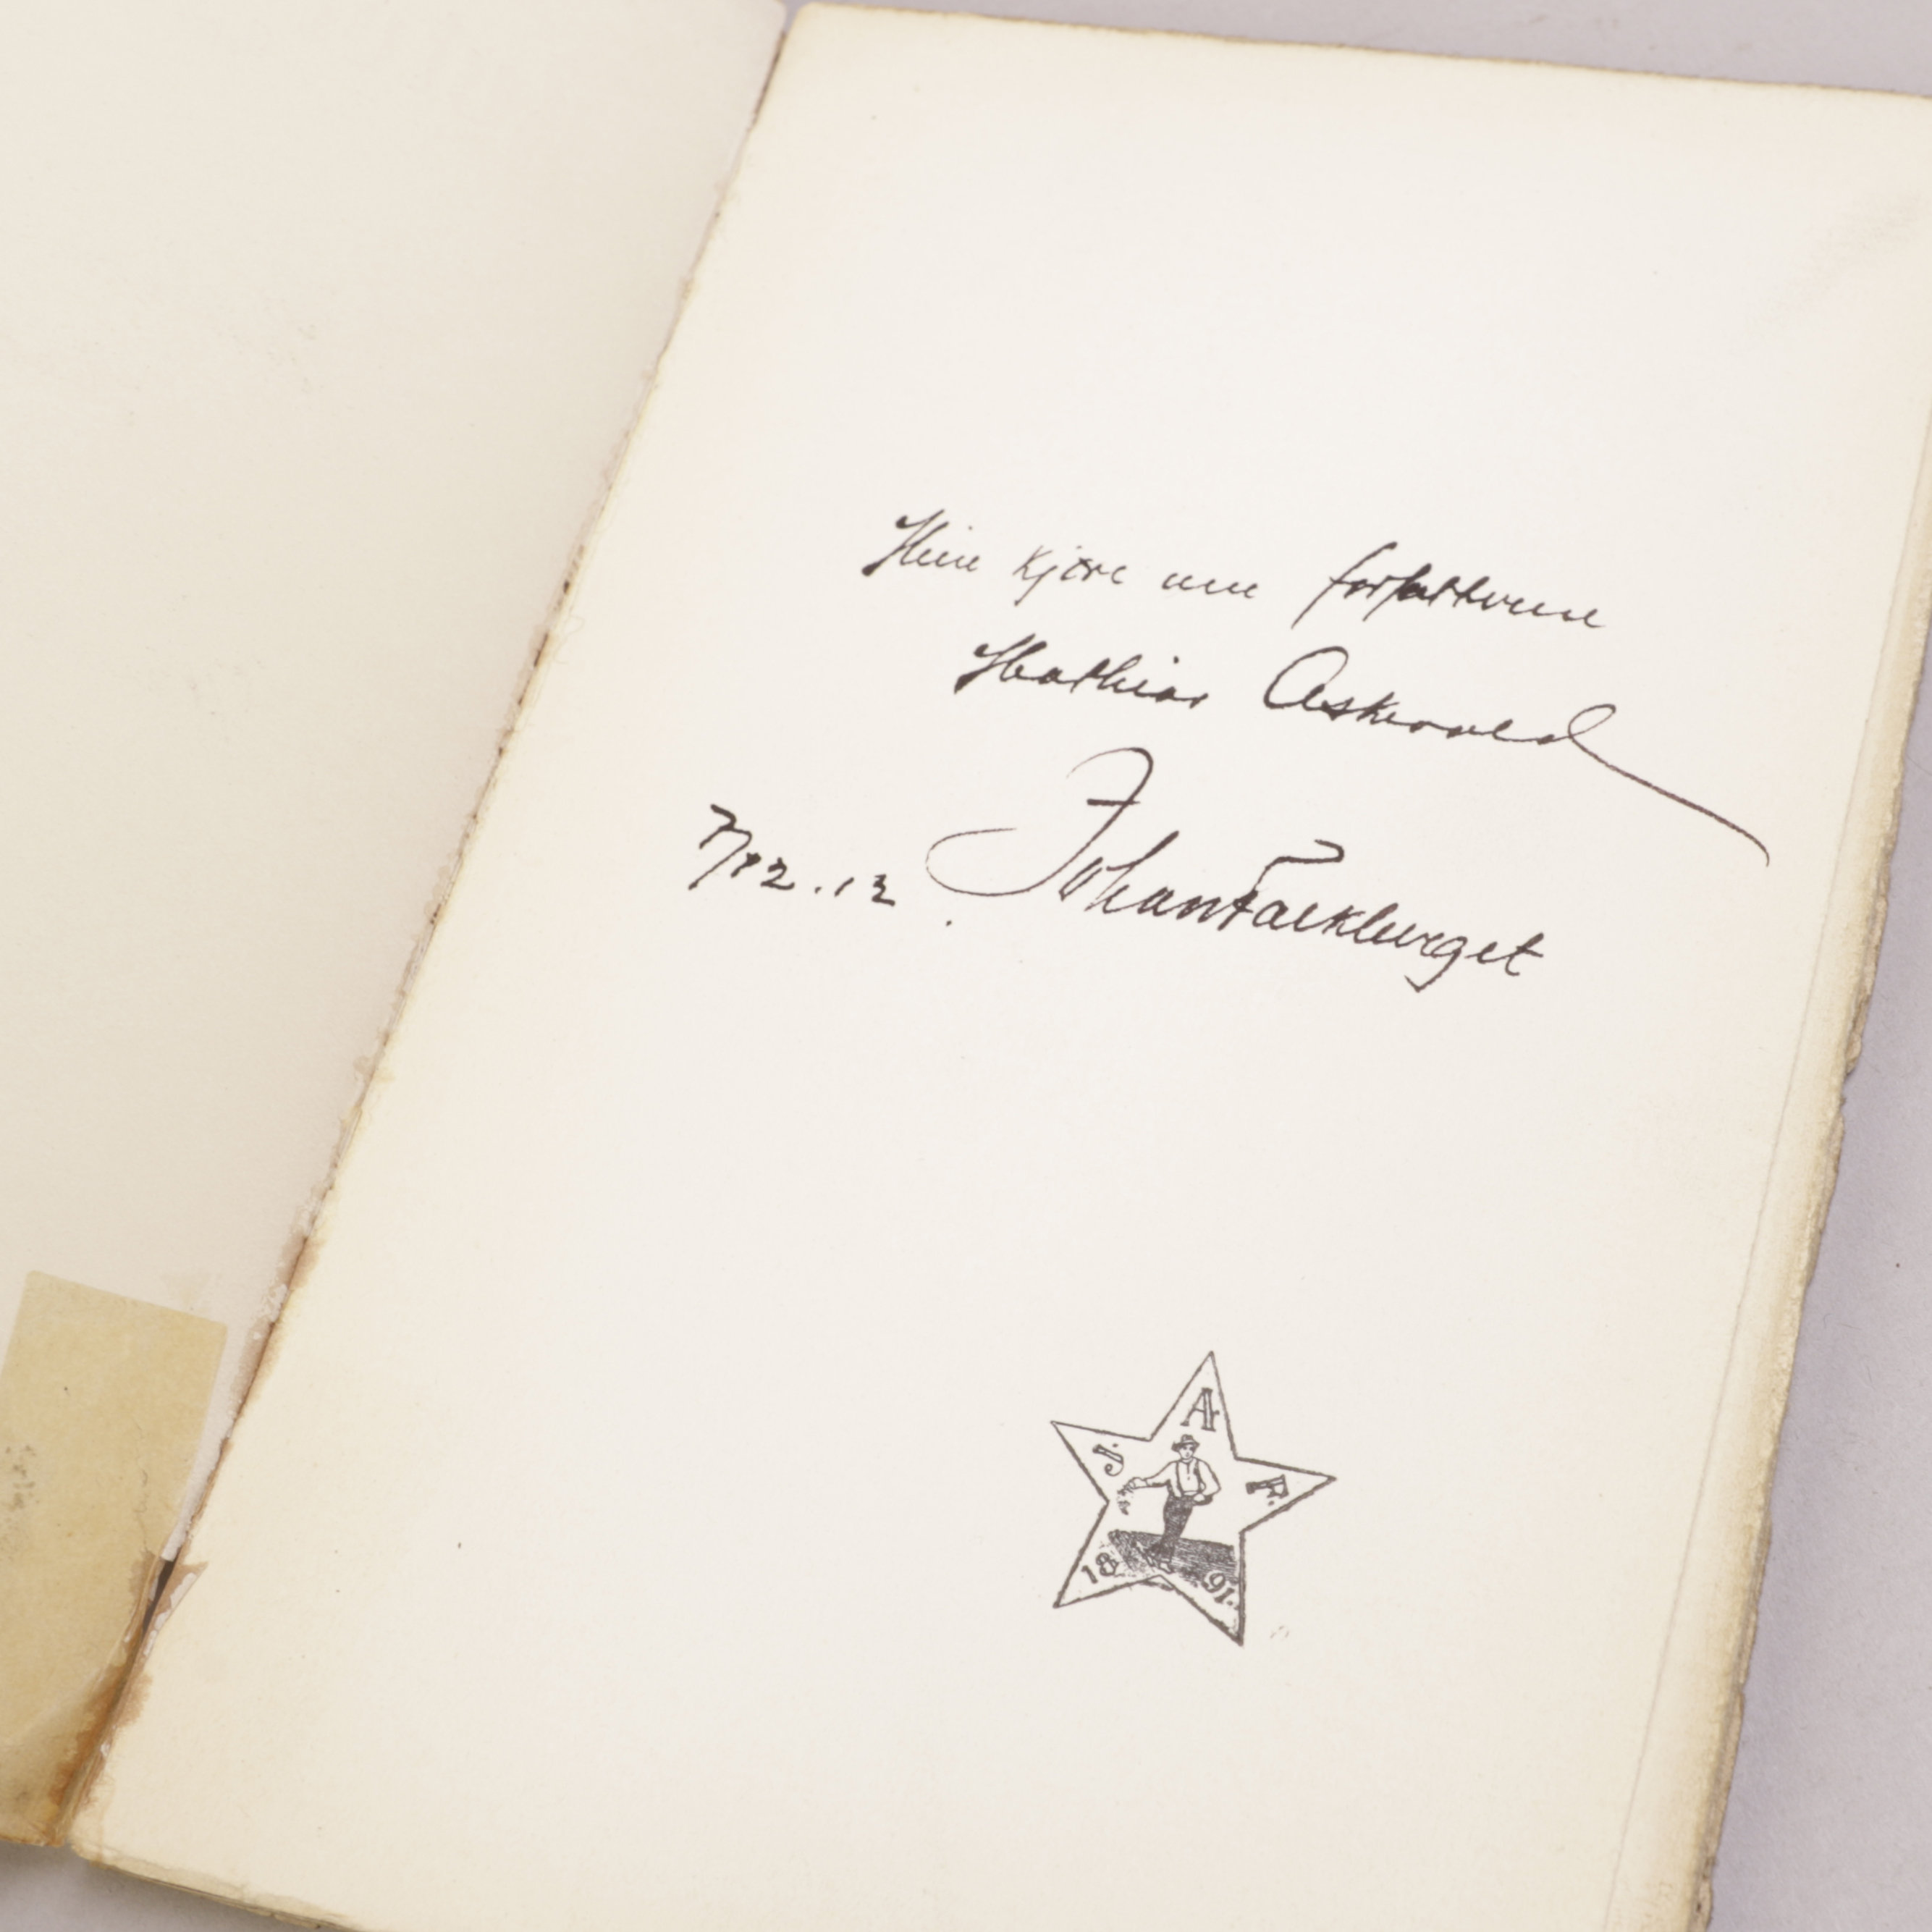 Min kjære ven forfatteren
Mathias Askevold
7/12.12. Johan Falkberget
J A F.
18 91.